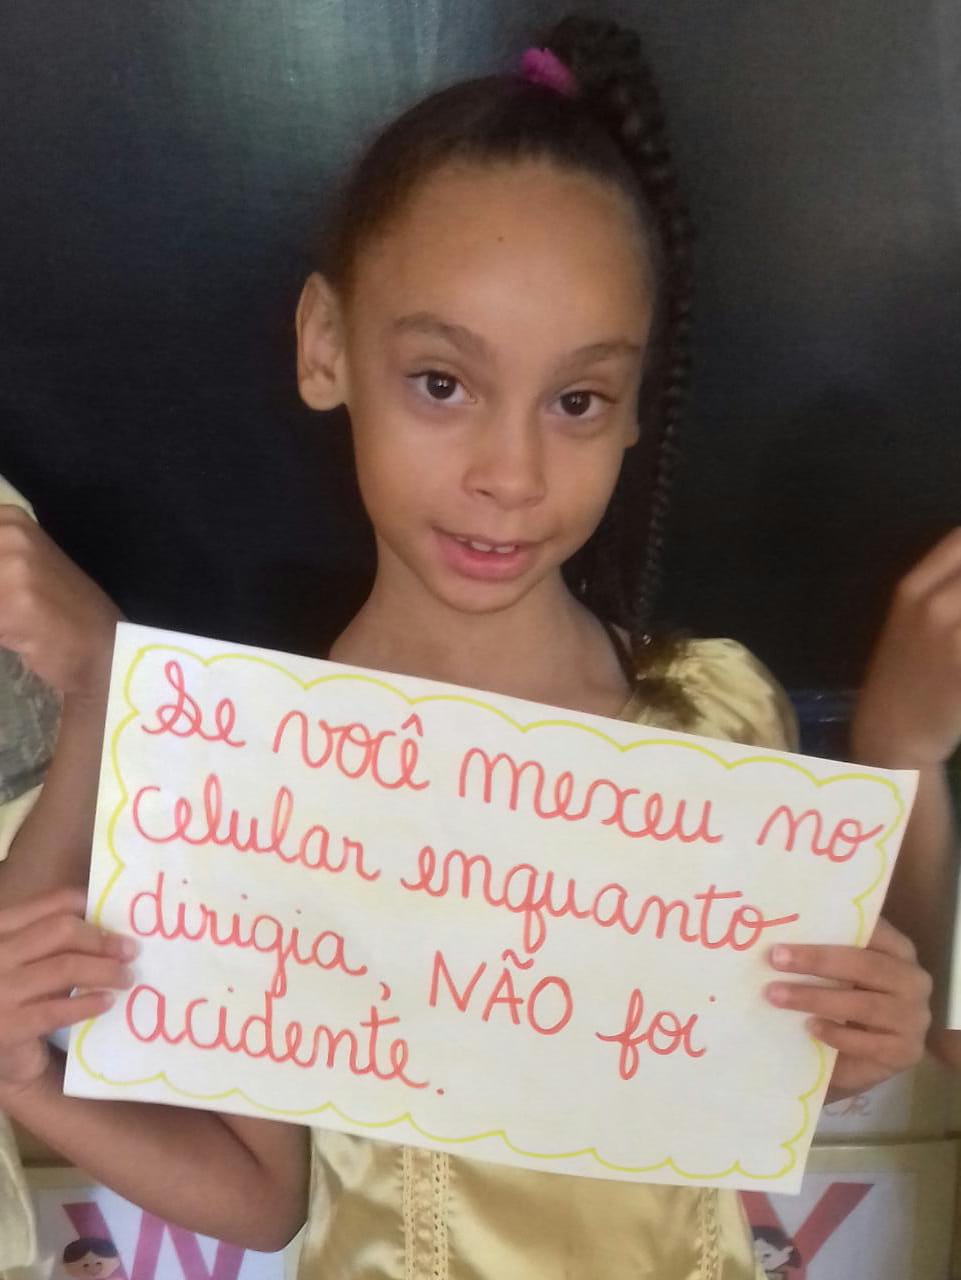 Se você mexeu no
celular enquanto
dirigia, NÃO foi
acidente.
W
Y